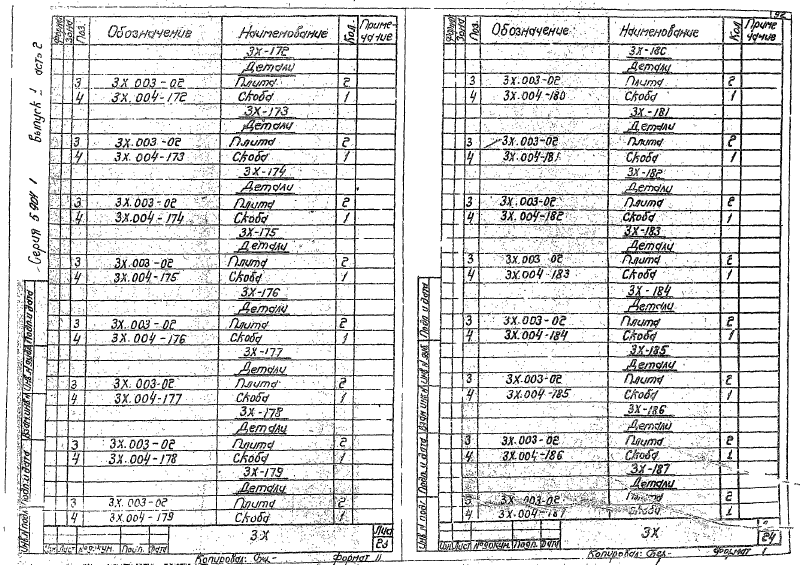 Серия 5.904-1 Выпуск 1 часть 2
Формат Зона Поз. Обозначение Наименование Кол. Приме-чание
3Х-172
Детали
3 3Х.003-02 Плита 2
4 3Х.004-172 Скоба 1
3Х-173
Детали
3 3Х.003-02 Плита 2
4 3Х.004-173 Скоба 1
3Х-174
Детали
3 3Х.003-02 Плита 2
4 3Х.004-174 Скоба 1
3Х-175
Детали
3 3Х.003-02 Плита 2
4 3Х.004-175 Скоба 1
3Х-176
Детали
3 3Х.003-02 Плита 2
4 3Х.004-176 Скоба 1
3Х-177
Детали
3 3Х.003-02 Плита 2
4 3Х.004-177 Скоба 1
3Х-178
Детали
3 3Х.003-02 Плита 2
4 3Х.004-178 Скоба 1
3Х-179
Детали
3 3Х.003-02 Плита 2
4 3Х.004-179 Скоба 1
Инв.№ подл. Подп. и дата Взам.инв.№ Инв.№ дубл. Подп. и дата
Изм. Лист № докум. Подп. Дата
3Х
Лист
23
Копировал: Формат 11
92
Формат Зона Поз. Обозначение Наименование Кол Приме чание
3Х-180
Детали
3 3Х.003-02 Плита 2
4 3Х.004-180 Скоба 1
3Х-181
Детали
3 3Х.003-02 Плита 2
4 3Х.004-181 Скоба 1
3Х-182
Детали
3 3Х.003-02 Плита 2
4 3Х.004-182 Скоба 1
3Х-183
Детали
3 3Х.003-02 Плита 2
4 3Х.004-183 Скоба 1
3Х-184
Детали
3 3Х.003-02 Плита 2
4 3Х.004-184 Скоба 1
3Х-185
Детали
3 3Х.003-02 Плита 2
4 3Х.004-185 Скоба 1
3Х-186
Детали
3 3Х.003-02 Плита 2
4 3Х.004-186 Скоба 1
3Х-187
Детали
3 3Х.003-02 Плита 2
4 3Х.004-187 Скоба 1
Инв.№ подл. Подп. и дата Взам.инв.№ Инв.№ дубл. Подп. и дата
Изм. Лист № докум. Подп. Дата
3Х
24
Копировал: Формат